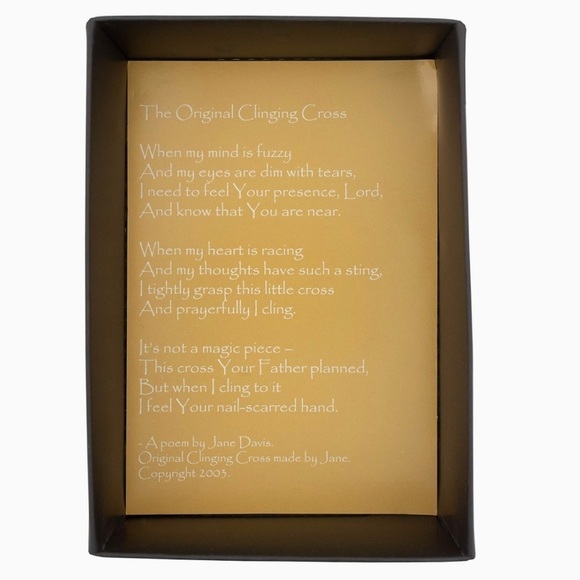 The Original Clinging Cross
When my mind is fuzzy
And my eyes are dim with tears,
I need to feel Your presence, Lord,
And know that You are near.
When my heart is racing
And my thoughts have such a sting,
I tightly grasp this little cross
And prayerfully I cling.
It's not a magic piece –
This cross Your Father planned,
But when I cling to it
I feel Your nail-scarred hand.
- A poem by Jane Davis.
Original Clinging Cross made by Jane.
Copyright 2003.